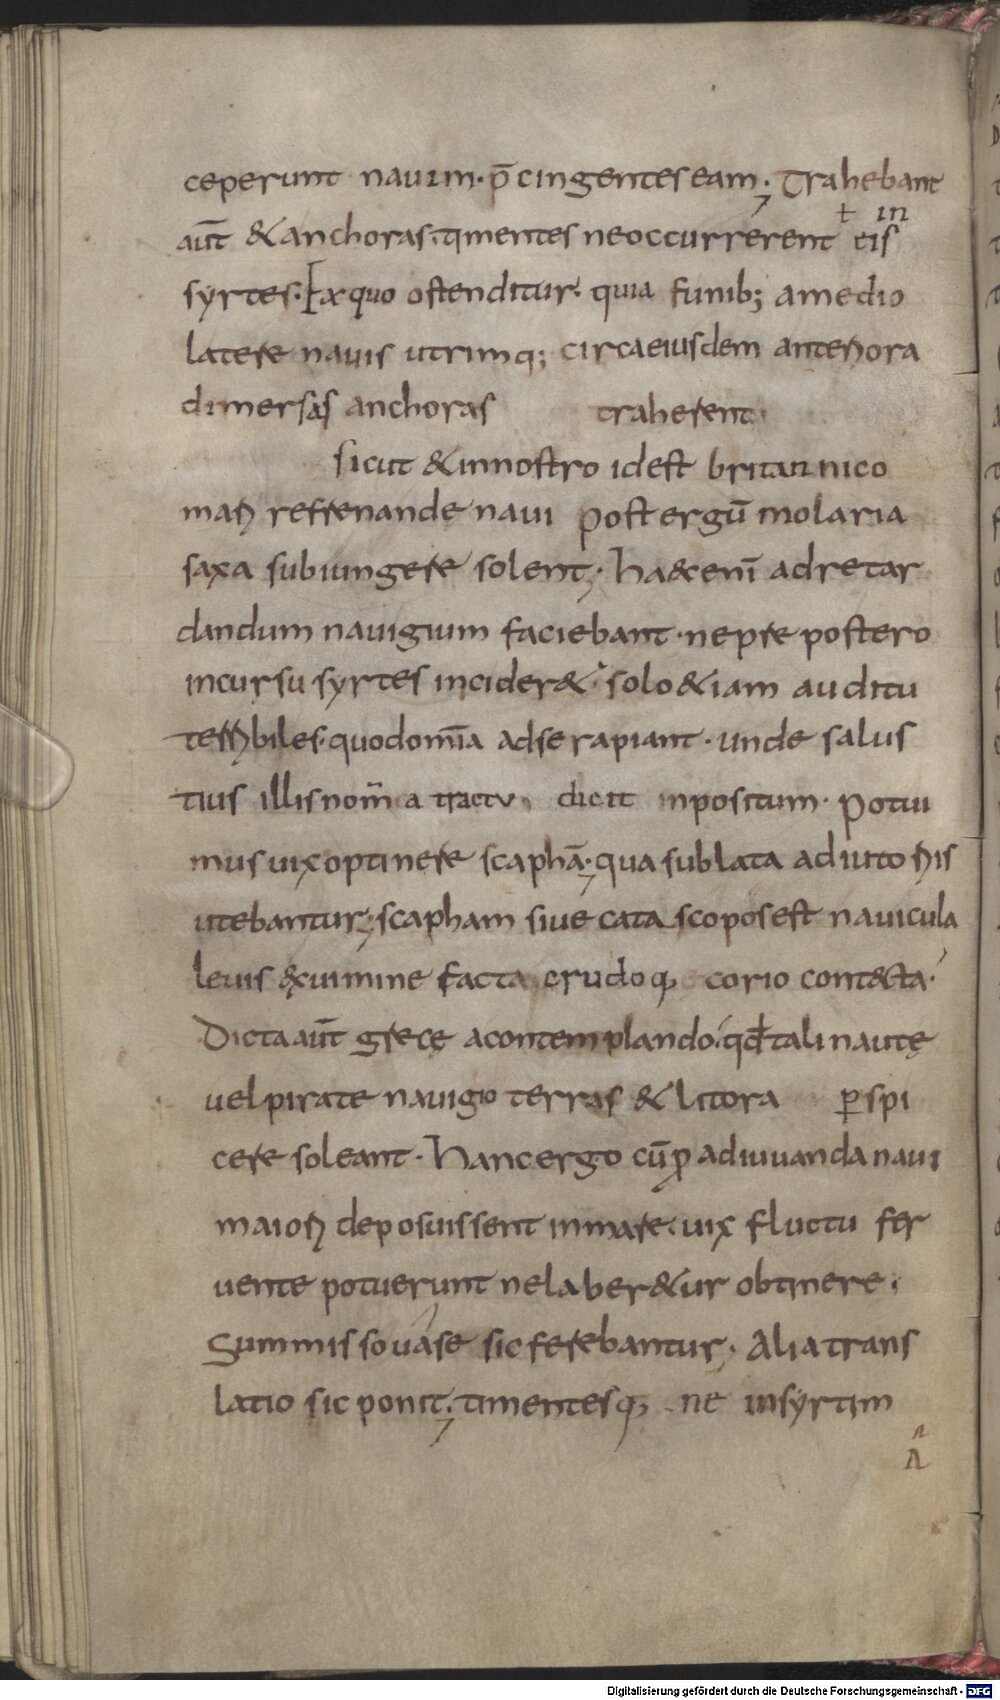 ceperunt nauim· p̄cingentes eam; Trahebant
ł in
aūt & anchoras· timentes ne occurrerent tis
syrtes· Ex quo ostenditur· quia funib; a medio
latere nauis utrimq; circa eiusdem anteriora
dimersas anchoras traherent·
sicut & in nostro id est britannico
mari refrenande naui post ergū molaria
saxa subiungere solent; haec enī ad retar
dandum nauigium faciebant· ne pre postero
incursu syrtes incider&· solo & iam auditu
terribiles· quod om̄ia ad se rapiant· unde salus
tius illis nom̄ a tractu dicit inpositum· Potui
mus uix optinere scaphā; qua sublata adiutoriis
utebantur; scapham siue catascopos est nauicula
leuis ex uimine facta crudoq; corio cont&cta·
Dicta aūt grece a contemplando· qđ tali nautę
uel pirate nauigio terras & litora ꝑspi
cere soleant· Hanc ergo cū ꝓ adiuuanda naui
maiori deposuissent in mare· uix fluctu fer
uente potuerunt ne laber&ur obtinere·
Summisso uase sic ferebantur· Alia trans
latio sic ponit; timentesq; ne in syrtim
Digitalisierung gefördert durch die Deutsche Forschungsgemeinschaft - DFG